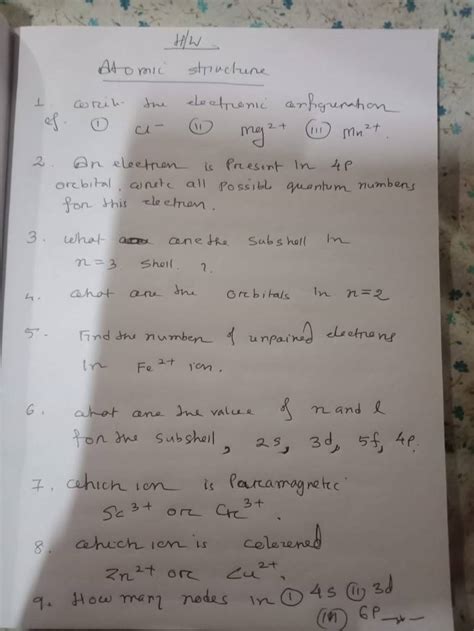 H/W.
Atomic structure
1. Write the electronic configuration
of. (i) Cl⁻ (ii) Mg²⁺ (iii) Mn²⁺.
2. An electron is Present in 4P
orbital, write all possible quantum numbers
for this electron.
3. What are the subshell in
n=3 shell. ?
4. What are the orbitals in n=2
5. Find the number of unpaired electrons
in Fe²⁺ ion.
6. What are the value of n and l
for the subshell, 2s, 3d, 5f, 4p.
7. Which ion is Paramagnetic
Sc³⁺ or Cr³⁺.
8. Which ion is colerened
Zn²⁺ or Cu²⁺.
9. How many nodes in (i) 4s (ii) 3d
(iii) 6P